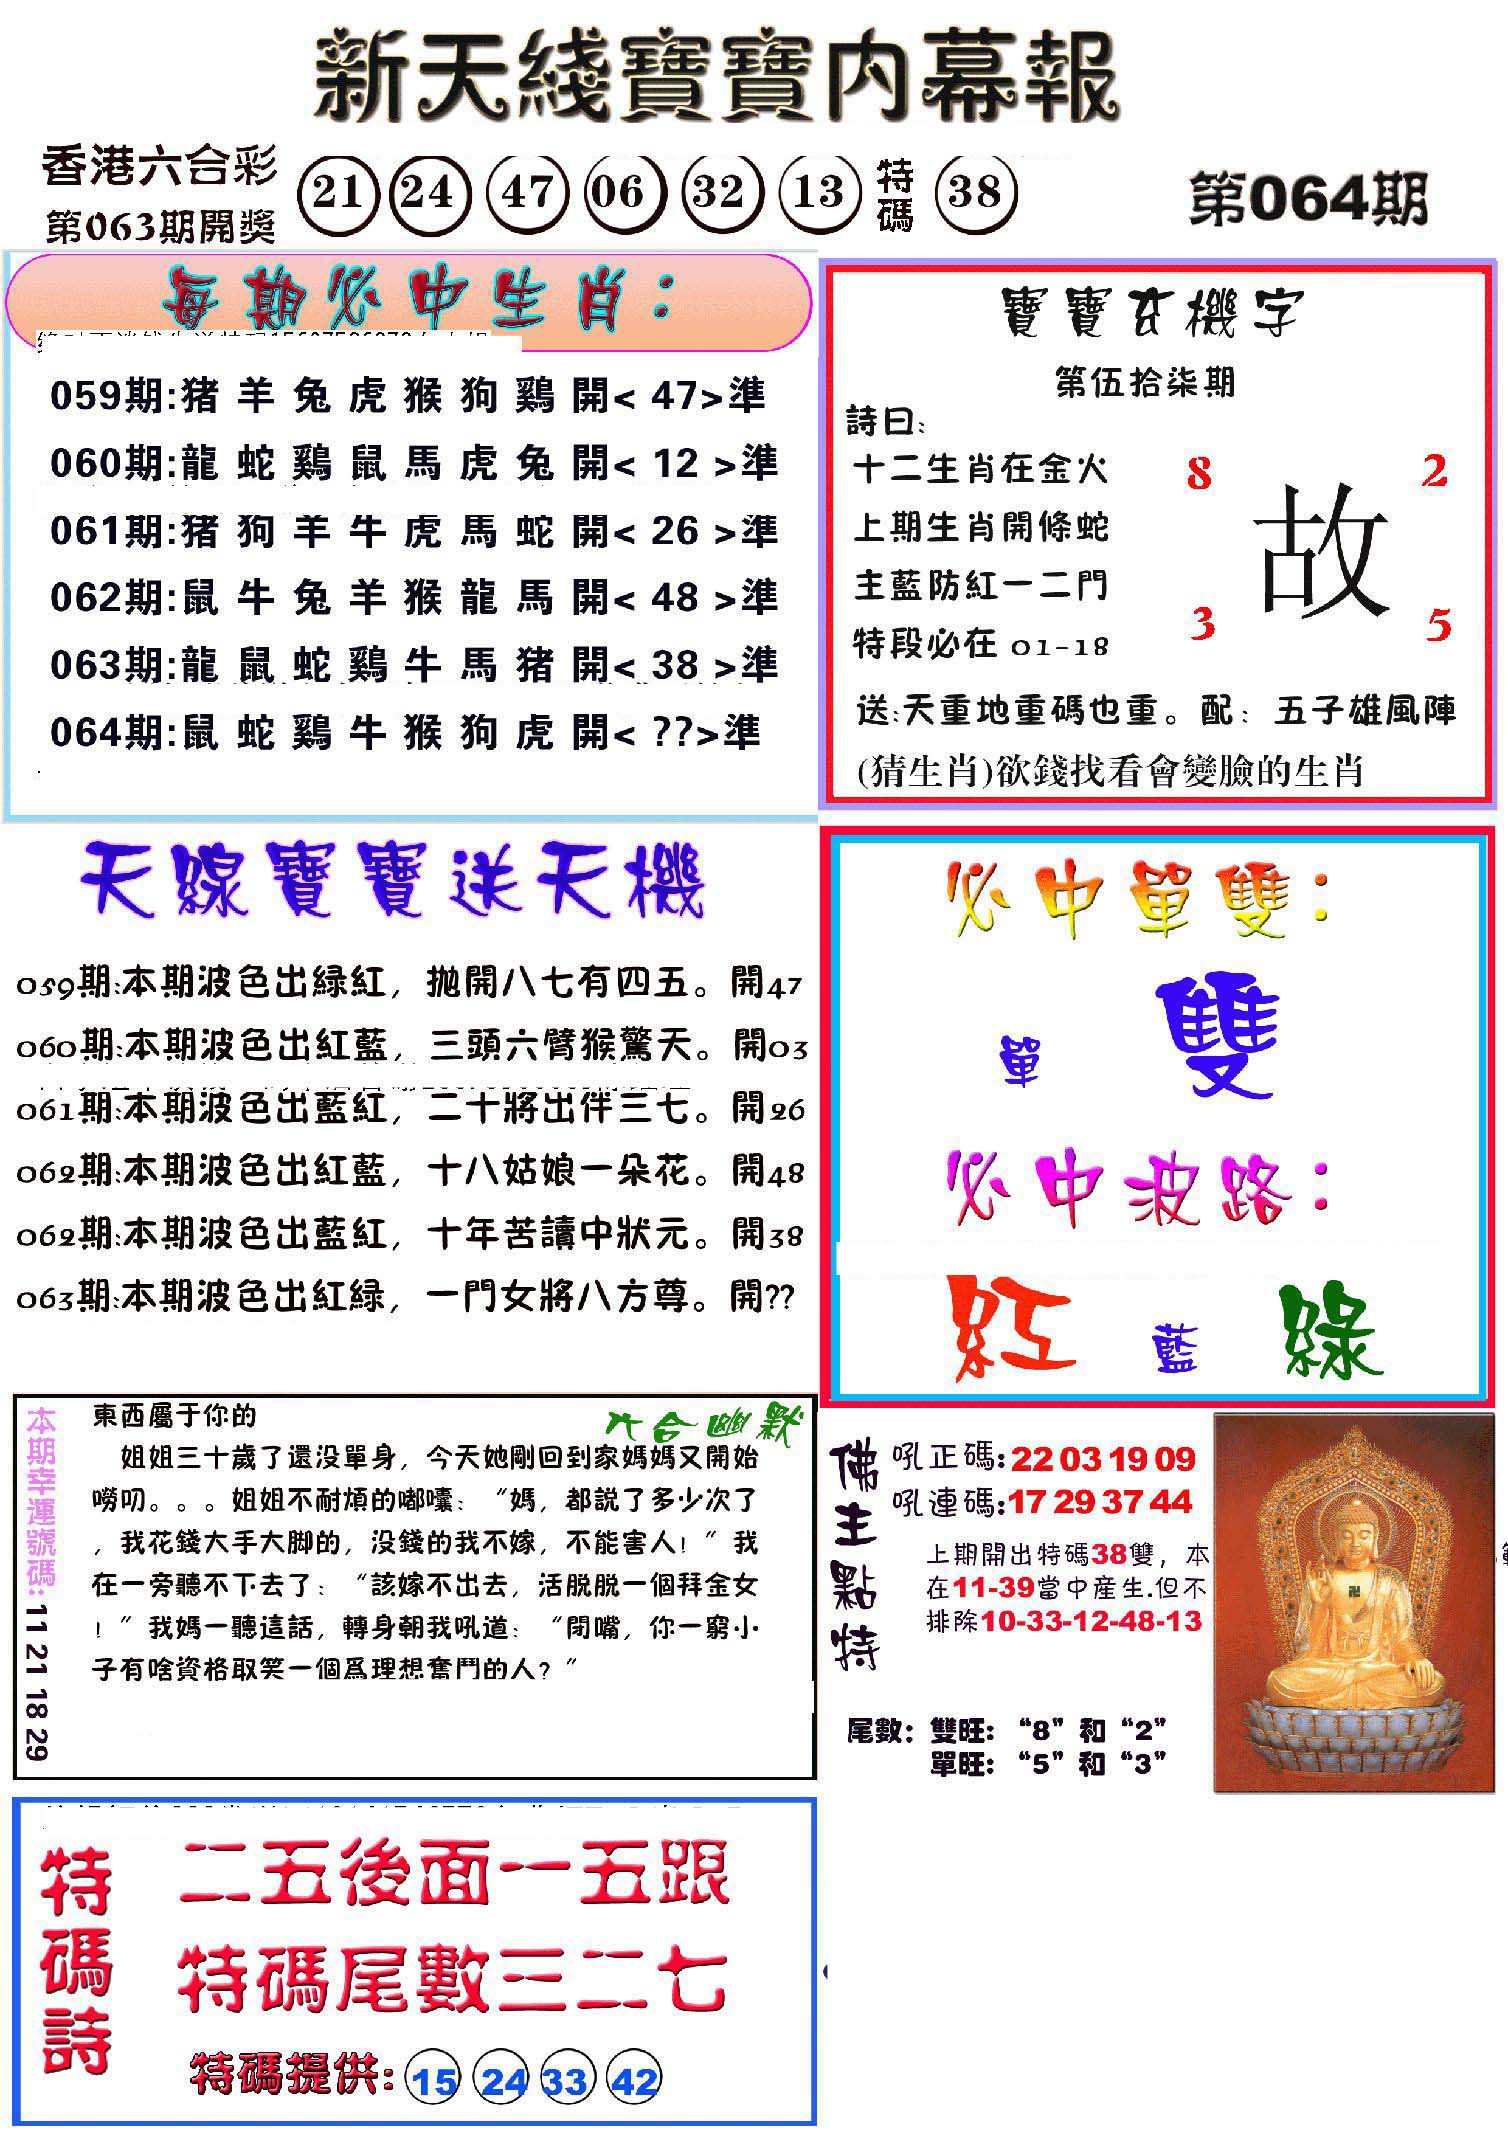 新天綫寶寶内幕報
香港六合彩
第063期開獎
21 24 47 06 32 13 特碼 38
第064期
每期必中生肖：
059期:猪羊兔虎猴狗鷄開< 47>準
060期:龍蛇鷄鼠馬虎兔開< 12 >準
061期:猪狗羊牛虎馬蛇開< 26 >準
062期:鼠牛兔羊猴龍馬開< 48 >準
063期:龍鼠蛇鷄牛馬猪開< 38 >準
064期:鼠蛇鷄牛猴狗虎開< ??>準
寶寶玄機字
第伍拾柒期
詩曰:
十二生肖在金火
上期生肖開條蛇
主藍防紅一二門
特段必在 01-18
8 2
故
3 5
送:天重地重碼也重。配：五子雄風陣
(猜生肖)欲錢找看會變臉的生肖
天線寶寶送天機
059期:本期波色出緑紅，抛開八七有四五。開47
060期:本期波色出紅藍，三頭六臂猴驚天。開03
061期:本期波色出藍紅，二十將出伴三七。開26
062期:本期波色出紅藍，十八姑娘一朵花。開48
062期:本期波色出藍紅，十年苦讀中狀元。開38
063期:本期波色出紅緑，一門女將八方尊。開??
必中單雙：
單 雙
必中波路：
紅 藍 綠
本期幸運號碼:11 21 18 29
六合幽默
東西屬于你的
姐姐三十歲了還没單身，今天她剛回到家媽媽又開始
嘮叨。。。姐姐不耐煩的嘟囔："媽，都説了多少次了
，我花錢大手大脚的，没錢的我不嫁，不能害人！"我
在一旁聽不下去了："該嫁不出去，活脱脱一個拜金女
！"我媽一聽這話，轉身朝我吼道："閉嘴，你一窮小
子有啥資格取笑一個爲理想奮鬥的人？"
佛主點特
吼正碼:22 03 19 09
吼連碼:17 29 37 44
上期開出特碼38雙，本
在11-39當中産生.但不
排除10-33-12-48-13
尾數：雙旺：“8”和“2”
單旺：“5”和“3”
特碼詩
二五後面一五跟
特碼尾數三二七
特碼提供: 15 24 33 42